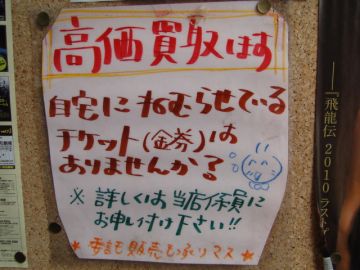 高価買取ます
自宅にねむらせている
チケット(金券)は
ありませんか?
※詳しくは当店係員に
お申し付け下さい!!
★委託販売も承りマス★
『飛龍伝2010ラスト